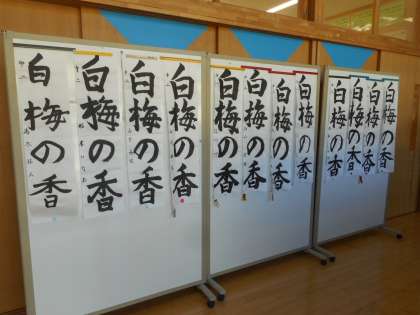 白梅の香
白梅の香
白梅の香
白梅の香
白梅の香
白梅の香
白梅の香
白梅の香
白梅の香
白梅の香
白梅の香
白梅の香